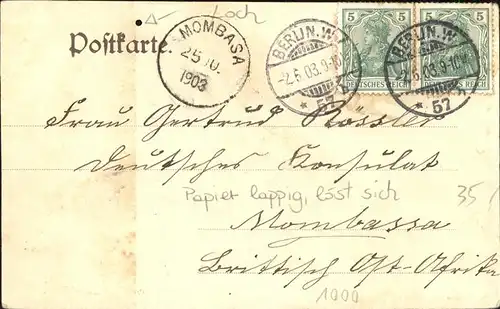 Loch
Postkarte.
MOMBASA
25 JU.
1903
BERLIN.W
-2.6.03.9-10
* 57
5 5
DEUTSCHES REICH
BERLIN.W
-2.6.03.9-10V.
* 57
5 5
DEUTSCHES REICH
Frau Gertrud Rossler
Deutsches Konsulat
Papier lappig, löst sich
35
Mombassa
Brittisch Ost-Afrika
1000